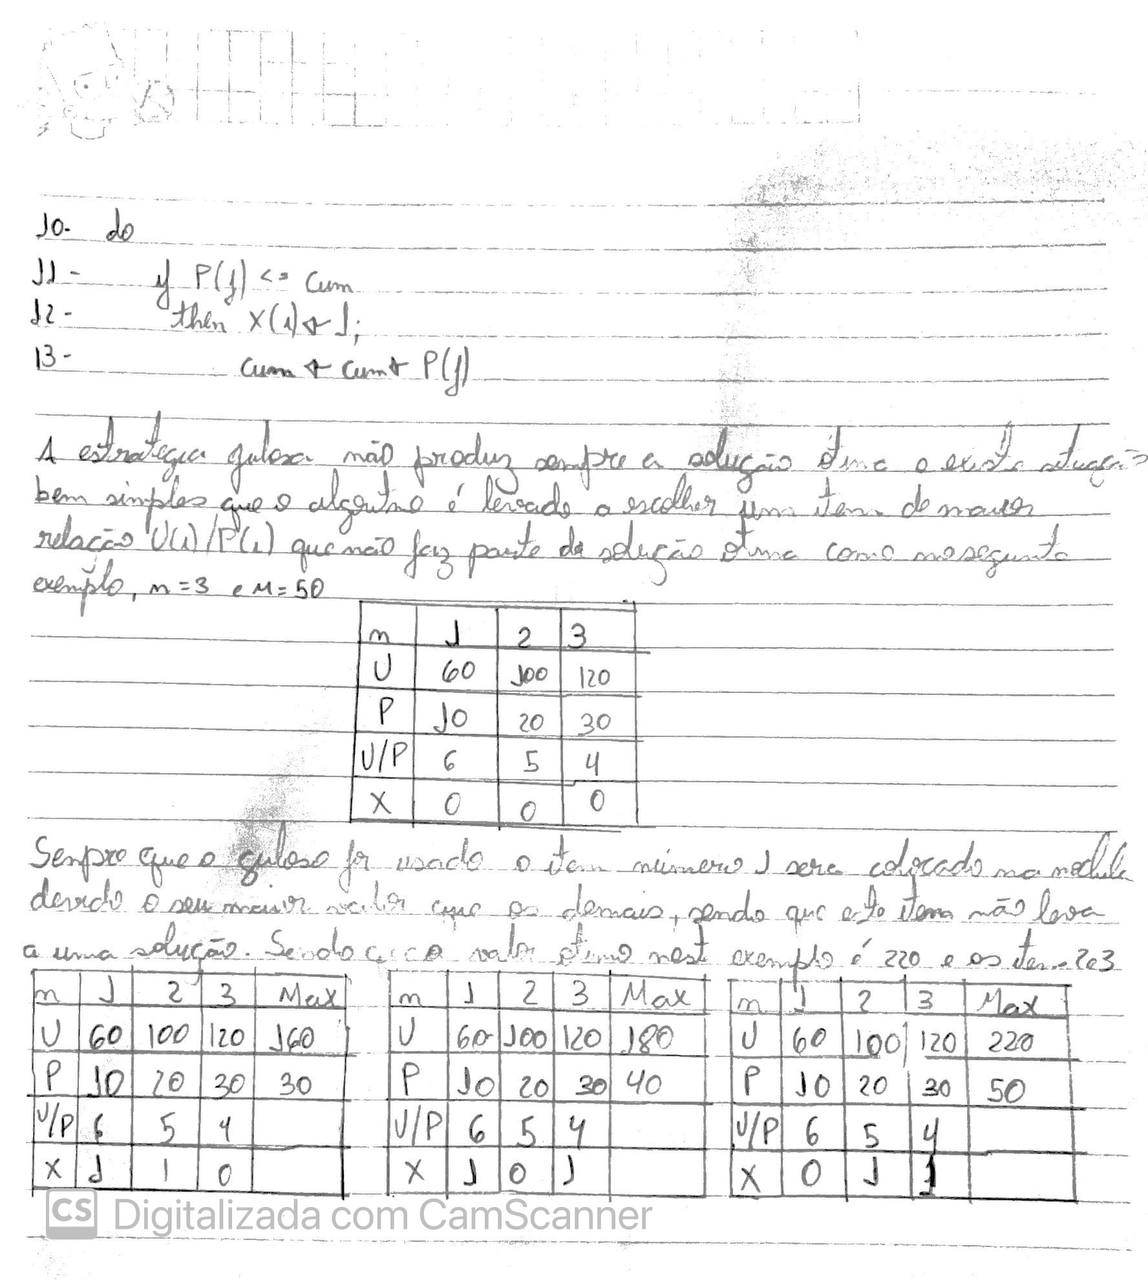 10. do
11- if P(j) <= Cum
12- then X(i) ← 1;
13- cum ← cum + P(j)
A estrategia gulosa não produz sempre a solução ótima e existe situação
bem simples que o algoritmo é levado a escolher um item de maior
relação U(i)/P(i) que não faz parte da solução ótima como no segunte
exemplo, n=3 e M=50
n 1 2 3
U 60 100 120
P 10 20 30
U/P 6 5 4
X 0 0 0
Senpre que o guloso for usado o item número 1 sera colocado na
devido o seu maior valor que os demais, sendo que este item não leva
a uma solução. Sendo que o valor ótimo nest exemplo é 220 e os iten 2e3
n 1 2 3 Max n 1 2 3 Max n 1 2 3 Max
U 60 100 120 160 U 60 100 120 180 U 60 100 120 220
P 10 20 30 30 P 10 20 30 40 P 10 20 30 50
U/P 6 5 4 U/P 6 5 4 U/P 6 5 4
X 1 1 0 X 1 0 1 X 0 1 1
CS Digitalizada com CamScanner